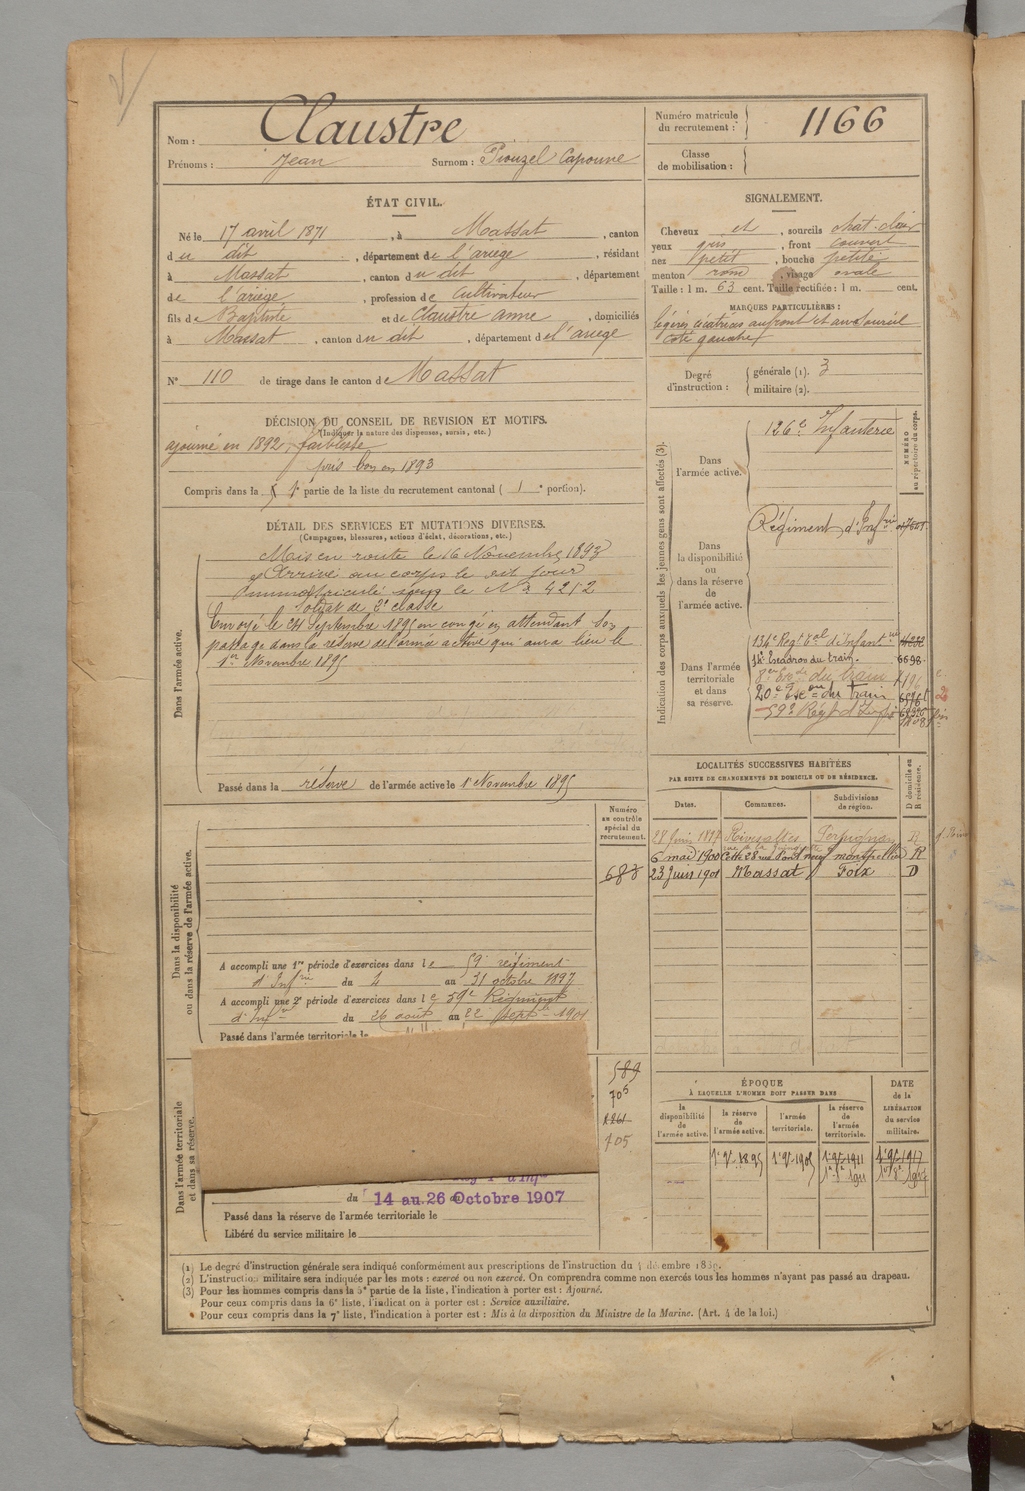 Nom : Claustre
Prénoms : Jean Surnom : Piouzel Capoune
Numéro matricule du recrutement : 1166
Classe de mobilisation :
ÉTAT CIVIL.
Né le 17 avril 1871, à Massat, canton
du dit, département de l'ariège, résidant
à Massat, canton du dit, département
de l'ariège, profession de cultivateur
fils de Baptiste et de Claustre anne, domiciliés
à Massat, canton du dit, département de l'ariège
N° 110 de tirage dans le canton de Massat
SIGNALEMENT.
Cheveux et, sourcils chat-clair
yeux gris, front couvert
nez petit, bouche petite
menton rond, visage ovale
Taille : 1 m. 63 cent. Taille rectifiée : 1 m. cent.
MARQUES PARTICULIÈRES :
légères cicatrices au front et au sourcil
côté gauche
Degré d'instruction : générale (1). 3
militaire (2).
DÉCISION DU CONSEIL DE REVISION ET MOTIFS.
(Indiquer la nature des dispenses, sursis, etc.)
ajourné en 1892, faiblesse
pris bon en 1893
Compris dans la 1e partie de la liste du recrutement cantonal ( 1e portion).
DÉTAIL DES SERVICES ET MUTATIONS DIVERSES.
(Campagnes, blessures, actions d'éclat, décorations, etc.)
Dans l'armée active.
Mis en route le 16 Novembre 1893
Arrivé au corps le dit jour
Immatriculé sous le N° 4212
Soldat de 2e classe
Envoyé le 24 Septembre 1895 en congé en attendant son
passage dans la réserve de l'armée active qui aura lieu le
1er Novembre 1895
Passé dans la réserve de l'armée active le 1er Novembre 1895
Indication des corps auxquels les jeunes gens sont affectés (3).
NUMÉRO au répertoire du corps.
Dans l'armée active.
126e Infanterie
Dans la disponibilité ou dans la réserve de l'armée active.
Régiment d'Infrie
Dans l'armée territoriale et dans sa réserve.
134e Regt Tal d'infanterie
Escadron du train. 6698
8e du train
20e du train
59e Régt d'Infie
LOCALITÉS SUCCESSIVES HABITÉES
PAR SUITE DE CHANGEMENTS DE DOMICILE OU DE RÉSIDENCE.
Dates. Communes. Subdivisions de région. D domicile ou R résidence.
28 Juin 1897 Rivesaltes Perpignan R
6 mai 1900 Cette 28 rue Pont neuf montpellier R
23 Juin 1901 Massat Foix D
Numéro au contrôle spécial du recrutement.
683
Dans la disponibilité ou dans la réserve de l'armée active.
A accompli une 1re période d'exercices dans le 59e régiment
d'Infrie du 4 au 31 octobre 1897
A accompli une 2e période d'exercices dans le 59e Régiment
d'Infrie du 26 août au 22 Septbre 1901
Passé dans l'armée territoriale le
Dans l'armée territoriale et dans sa réserve.
589
705
1261
705
du 14 au 26 Octobre 1907
Passé dans la réserve de l'armée territoriale le
Libéré du service militaire le
ÉPOQUE
À LAQUELLE L'HOMME DOIT PASSER DANS
la disponibilité de l'armée active. la réserve de l'armée active. l'armée territoriale. la réserve de l'armée territoriale.
DATE de la LIBÉRATION du service militaire.
(1) Le degré d'instruction générale sera indiqué conformément aux prescriptions de l'instruction du 4 décembre 1889.
(2) L'instruction militaire sera indiquée par les mots : exercé ou non exercé. On comprendra comme non exercés tous les hommes n'ayant pas passé au drapeau.
(3) Pour les hommes compris dans la 5e partie de la liste, l'indication à porter est : Ajourné.
Pour ceux compris dans la 6e liste, l'indication à porter est : Service auxiliaire.
Pour ceux compris dans la 7e liste, l'indication à porter est : Mis à la disposition du Ministre de la Marine. (Art. 4 de la loi.)